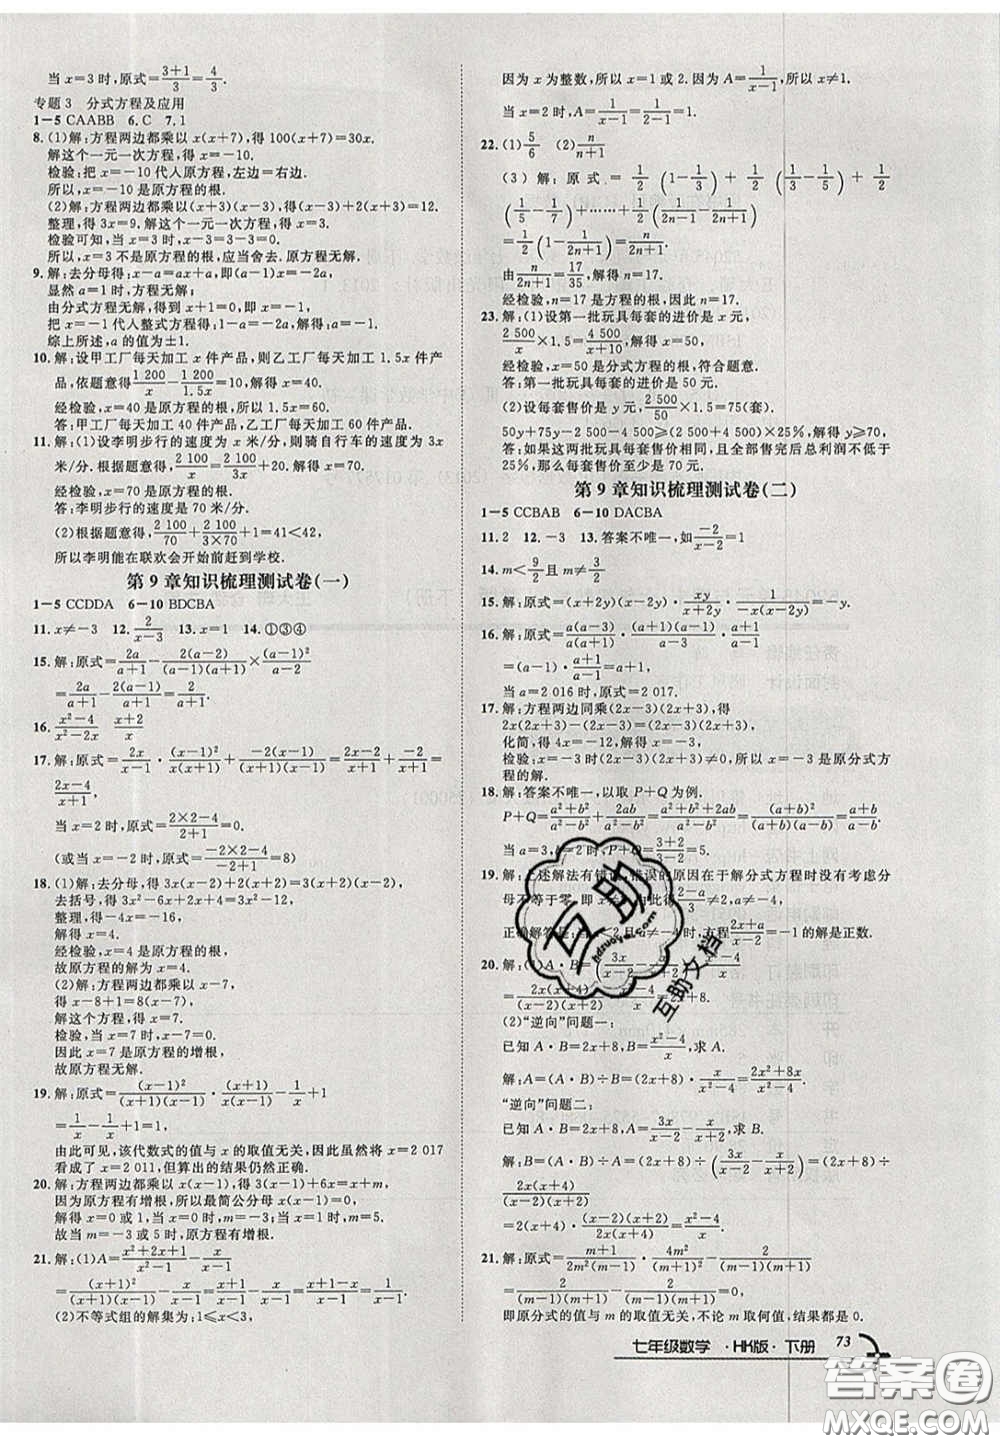 当 x=3 时,原式=(3+1)/3=4/3.
专题 3 分式方程及应用
1—5 CAABB 6.C 7.1
8.(1)解:方程两边都乘以 x(x+7),得 100(x+7)=30x.
解这个一元一次方程,得 x=-10.
检验:把 x=-10 代人原方程,左边=右边.
所以,x=-10 是原方程的根.
(2)解:方程两边都乘以(x+3)(x-3),得(x-3)+2(x+3)=12.
整理,得 3x=9.解这个一元一次方程,得 x=3.
检验可知,当 x=3 时,(x+3)(x-3)=0,
所以,x=3 不是原方程的根,应当舍去.原方程无解.
9.解:去分母得:x-a=ax+a,即(a-1)x=-2a,
显然 a=1 时,方程无解.
由分式方程无解,得到 x+1=0,即 x=-1,
把 x=-1 代人整式方程得:1-a=-2a,解得:a=-1.
综上所述,a 的值为±1.
10.解:设甲工厂每天加工 x 件产品,则乙工厂每天加工 1.5x 件产
品,依题意得1 200/x-1 200/1.5x=10,解得:x=40.
经检验,x=40 是原方程的根,所以 1.5x=60.
答:甲工厂每天加工 40 件产品,乙工厂每天加工 60 件产品.
11.解:(1)设李明步行的速度为 x 米/分,则骑自行车的速度为 3x
米/分.根据题意,得2 100/x-2 100/3x=20.得 x=70.
经检验,x=70 是原方程的解.
答:李明步行的速度是 70 米/分.
(2)根据题意,得2 100/70+2 100/(3×70)+1=41<42,
所以李明能在联欢会开始前赶到学校.
第 9 章知识梳理测试卷(一)
1—5 CCDDA 6—10 BDCBA
11.x≠-3 12.2/(x-3) 13.x=1 14.①③④
15.解:原式=2a/(a+1)-2(a-2)/((a-1)(a+1))×(a-1)²/(a-2)
=2a/(a+1)-2(a-1)/(a+1)=2/(a+1).
16.(x²-4)/(x²-2x) (x+2)/x
17.解:原式=2x/(x-1)·(x-1)²/(x+1)+-2(x-1)/(x+1)=(2x-2)/(x+1)·(x-1)=
(2x-4)/(x+1),
当 x=2 时,原式=(2×2-4)/(2+1)=0.
(或当 x=-2 时,原式=(-2×2-4)/(-2+1)=8)
18.(1)解:去分母,得 3x(x-2)+2(x+2)=3(x+2)(x-2),
去括号,得 3x²-6x+2x+4=3x²-12,
整理,得-4x=-16.
解得 x=4.
经检验,x=4 是原方程的根.
故原方程的解为 x=4.
(2)解:方程两边都乘以 x-7,
得 x-8+1=8(x-7),
解这个方程,得 x=7.
检验,当 x=7 时,x-7=0,
因此 x=7 是原方程的增根,
故原方程无解.
19.解:原式=(x-1)²/((x+1)(x-1))·(x+1)/(x-1)-1/x·x+1
=1-1+1=1.
由此可见,该代数式的值与 x 的取值无关,因此虽然将 x=2 017
看成了 x=2 011,但算出的结果仍然正确.
20.解:方程两边都乘以 x(x-1),得 3(x-1)+6x=x+m,
因为原方程有增根,所以最简公分母 x(x-1)=0,
解得 x=0 或 1,当 x=0 时,m=-3;当 x=1 时,m=5.
故当 m=-3 或 5 时,原方程有增根.
21.解:(1)A=(x²+2x+1)/(x²-1)-x/(x-1)
=(x+1)²/((x+1)(x-1))-x/(x-1)=(x+1)/(x-1)-x/(x-1)=1/(x-1).
(2)不等式组的解集为:1≤x<3,
因为 x 为整数,所以 x=1 或 2.因为 A=1/(x-1),所以 x≠1.
当 x=2 时,A=1/(x-1)=1/(2-1)=1.
22.(1)5/6 (2)n/(n+1)
(3)解:原式=1/2(1-1/3)+1/2(1/3-1/5)+1/2
(1/5-1/7)+……+1/2(1/(2n-1)-1/(2n+1))
=1/2(1-1/(2n+1))=n/(2n+1),
由n/(2n+1)=17/35,解得:n=17.
经检验,n=17 是方程的根,因此 n=17.
23.解:(1)设第一批玩具每套的进价是 x 元,
2 500/x×1.5=4 500/(x+10),解得:x=50.
经检验,x=50 是分式方程的解,符合题意.
答:第一批玩具每套的进价是 50 元.
(2)设每套售价是 y 元,2 500/50×1.5=75(套).
50y+75y-2 500-4 500≥(2 500+4 500)×25%,解得 y≥70.
答:如果这两批玩具每套售价相同,且全部售完后总利润不低于
25%,那么每套售价至少是 70 元.
第 9 章知识梳理测试卷(二)
1—5 CCBAB 6—10 DACBA
11.2 12.-3 13.答案不唯一,如-2/(x-2)=1
14.m<9/2且 m≠3/2
15.解:原式=(x+2y)(x-2y)·xy/(x+2y)·1/(-xy(x-2y))=-1.
16.解:原式=a(a-3)/(a+1)·(a+1)(a-1)/(a-3)·(a+1)/(a(a-1))
=(a-1)·(a+1)/(a-1)=a+1.
当 a=2 016 时,原式=2 017.
17.解:方程两边同乘(2x-3)(2x+3),得
2x(2x+3)-(2x-3)=(2x-3)(2x+3).
化简,得 4x=-12,解得 x=-3.
检验:x=-3 时,(2x-3)(2x+3)≠0,所以 x=-3 是原分式方
程的解.
18.解:答案不唯一,以取 P+Q 为例.
P+Q=(a²+b²)/(a²-b²)+2ab/(a²-b²)=(a²+b²+2ab)/(a²-b²)=(a+b)²/(a²-b²)=(a+b)/(a-b),
当 a=3,b=2 时,P+Q=(3+2)/(3-2)=5.
19.解:上述解法有错误,错误的原因在于解分式方程时没有考虑分
正确解答是:当 a<2 且 a≠-4 时,方程(2x+a)/(x-2)=-1 的解是正数.
(2)“逆向”问题一:
已知 A·B=2x+8,B=(x²-4)/x,求 A.
解:A=(A·B)÷B=(2x+8)·x/(x²-4)=(2x²+8x)/(x²-4).
“逆向”问题二:
已知 A·B=2x+8,A=3x/(x-2)-x/(x+2),求 B.
解:B=(A·B)÷A=(2x+8)÷(3x/(x-2)-x/(x+2))=(2x+8)÷
2x(x+4)/((x-2)(x+2))
=2(x+4)·(x-2)(x+2)/(2x(x+4))=(x²-4)/x.
21.解:原式=(m+1)/(2m²(m-1))·4m²/(m+1)-2/(m-1)=2/(m-1)-2/(m-1)=0.
即原分式的值与 m 的取值无关,不论 m 取何值,结果都是 0.
七年级数学·HK版·下册 73
互助
hdzuoye.com
互助文档
答案圈
MXQE.COM